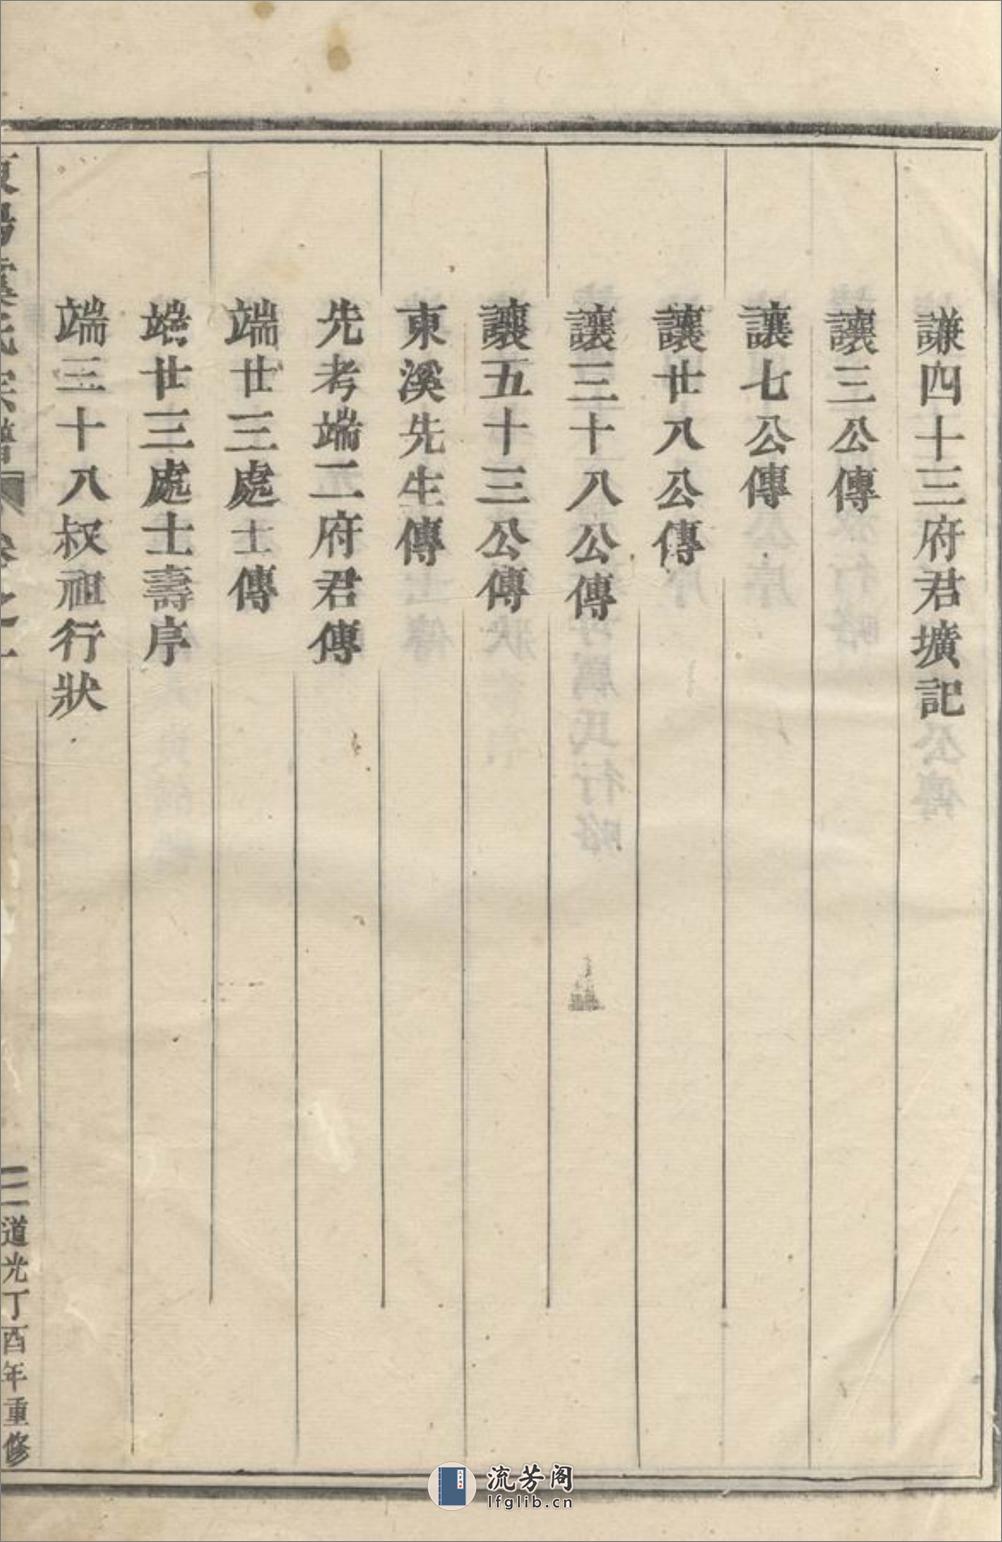 謙四十三府君壙記
讓三公傳
讓七公傳
讓廿八公傳
讓三十八公傳
讓五十三公傳
東溪先生傳
先考端二府君傳
端廿三處士傳
端廿三處士壽序
端三十八叔祖行狀
東陽 氏宗譜 卷之一
道光丁酉年重修
流芳阁
lfglib.cn